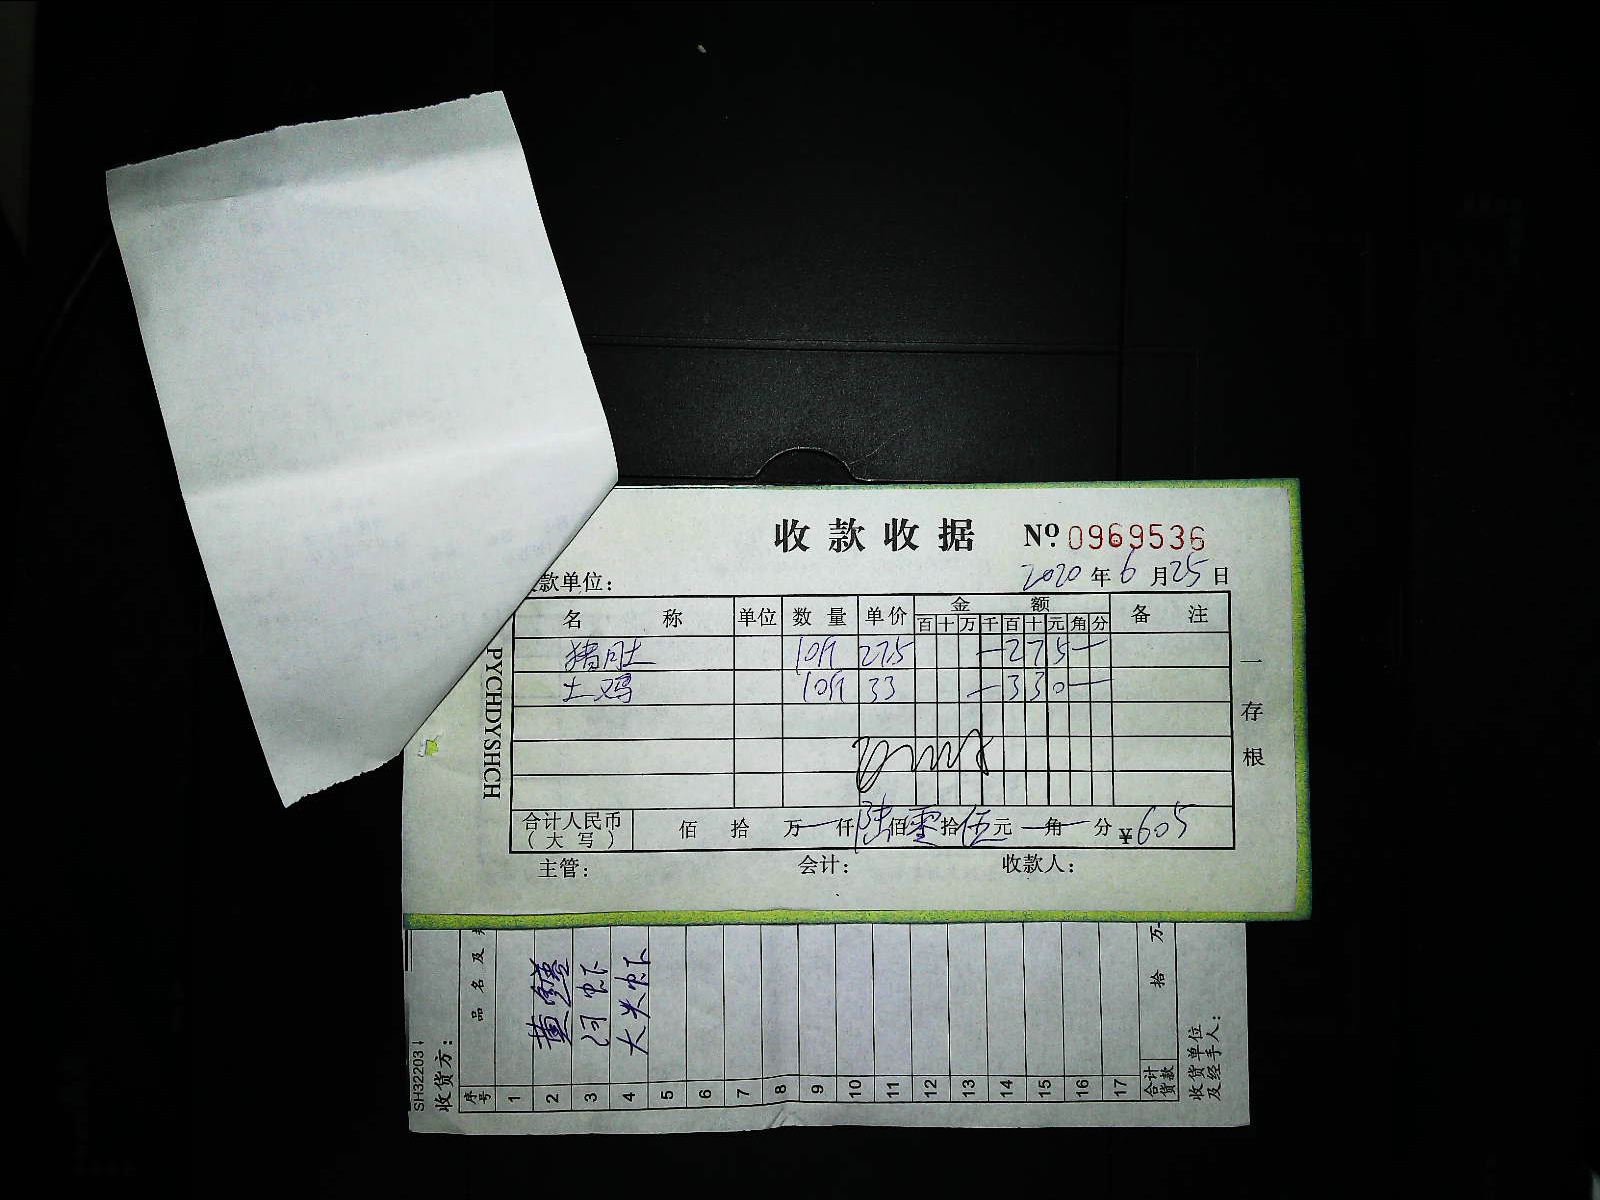 收款收据 No. 0969536
2020年6月25日
款单位：
名称 单位 数量 单价 金额 备注
百 十 万 千 百 十 元 角 分
猪肚 10斤 27.5 一275一
土鸡 10斤 33 一330一
合计人民币（大写） 佰 拾 万 仟 陆 佰 零 拾 伍 元 角 分 ¥605
主管： 会计： 收款人：
一存根
PYCHDYSHCH
SH32203
收货方：
序号 品名及
1
2 黄鳝
3 河虾
4 大头虾
5
6
7
8
9
10
11
12
13
14
15
16
17
合计货款 拾 万
收货单位及经手人：